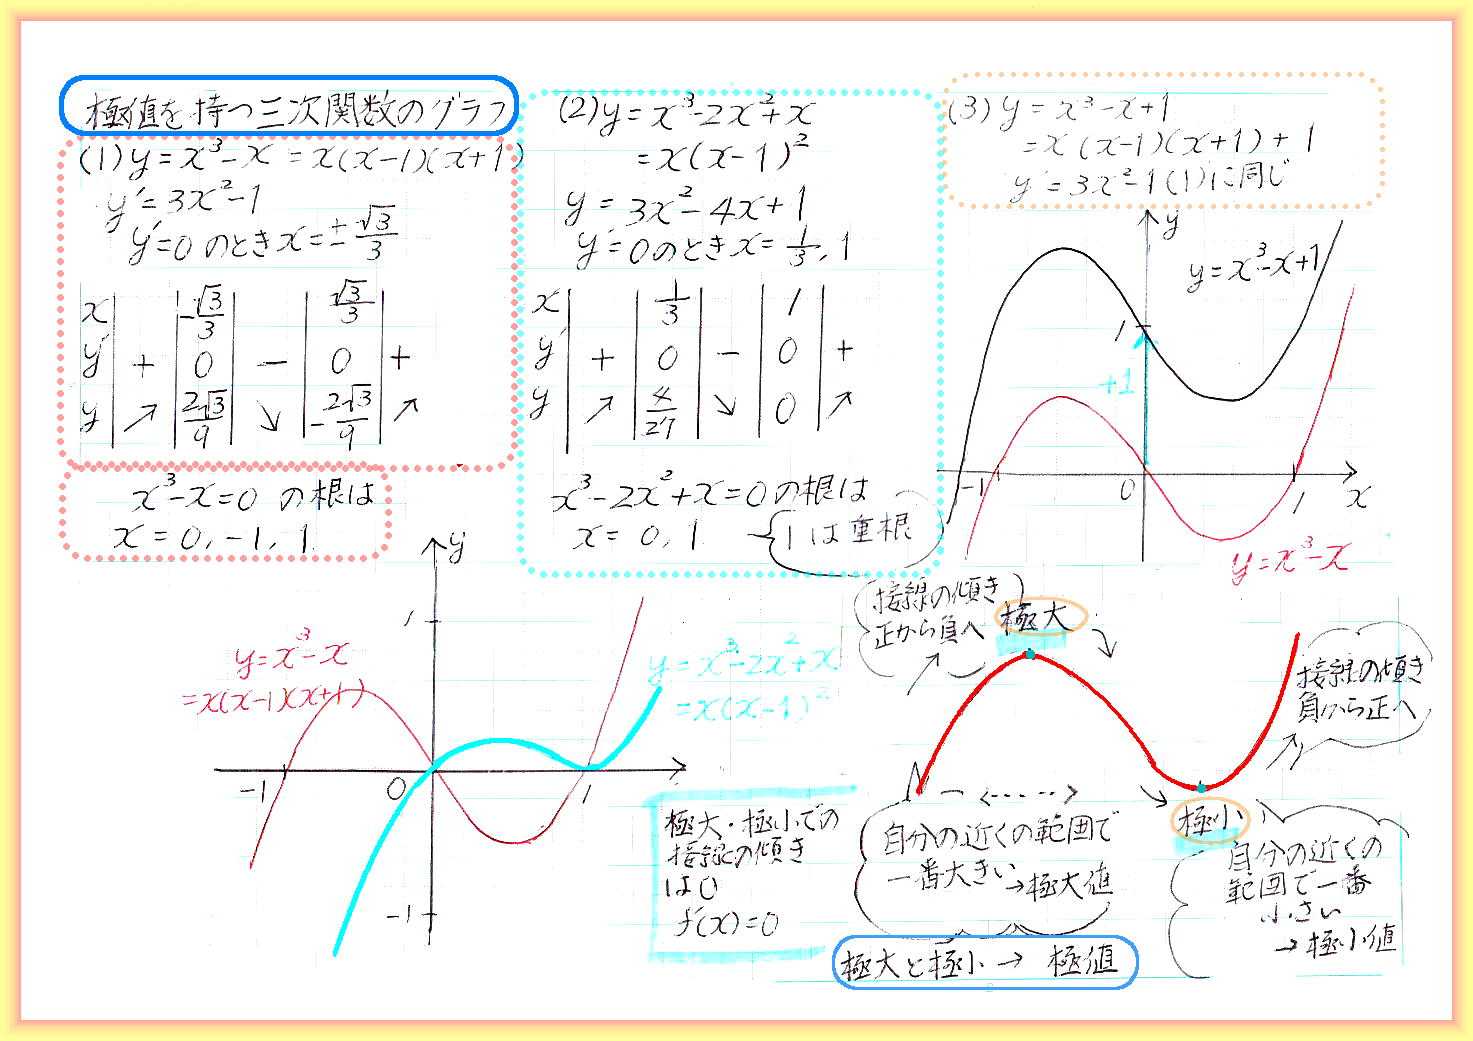 極値を持つ三次関数のグラフ
(1) y = x³-x = x(x-1)(x+1)
y' = 3x²-1
y'=0 のとき x=±√3/3
x | | -√3/3 | | √3/3 |
y' | + | 0 | - | 0 | +
y | ↗ | 2√3/9 | ↘ | -2√3/9 | ↗
x³-x=0 の根は
x = 0, -1, 1
(2) y = x³-2x²+x
= x(x-1)²
y = 3x²-4x+1
y'=0のとき x= 1/3, 1
x | | 1/3 | | 1 |
y' | + | 0 | - | 0 | +
y | ↗ | 4/27 | ↘ | 0 | ↗
x³-2x²+x=0 の根は
x = 0, 1
1は重根
(3) y = x³-x+1
= x(x-1)(x+1)+1
y' = 3x²-1 (1)に同じ
y
y = x³-x+1
1
+1
-1
0
1
x
y = x³-x
y
1
y = x³-x
= x(x-1)(x+1)
y = x³-2x²+x
= x(x-1)²
-1
0
1
-1
極大・極小での
接線の傾き
は0
f'(x)=0
接線の傾き
正から負へ
極大
接線の傾き
負から正へ
極小
自分の近くの範囲で
一番大きい
→極大値
自分の近くの
範囲で一番
小さい
→極小値
極大と極小 → 極値